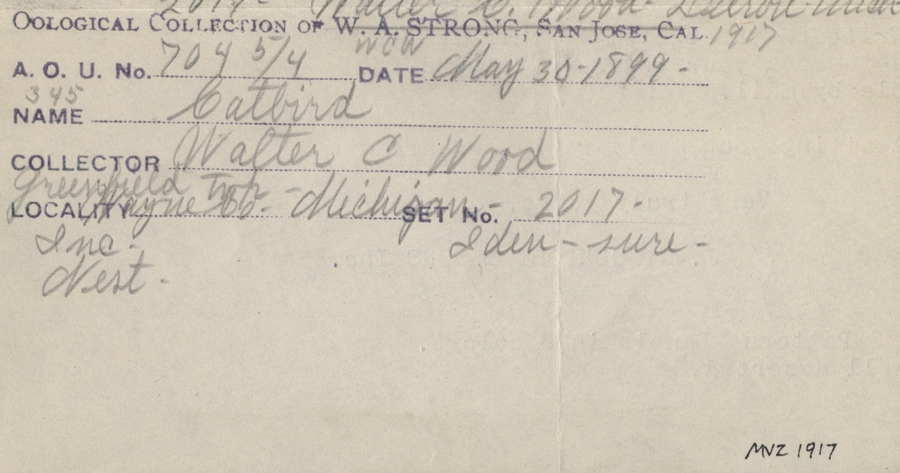 2017 - Walter C. Wood - Detroit Mich
OOLOGICAL COLLECTION OF W. A. STRONG, SAN JOSE, CAL. 1917
WCW
A. O. U. No. 704 5/4 DATE May 30-1899-
345
NAME Catbird
COLLECTOR Walter C Wood
Greenfield Twp -
LOCALITY Wayne Co. - Michigan - SET No. 2017-
Inc - Iden - sure -
Nest -
MVZ 1917